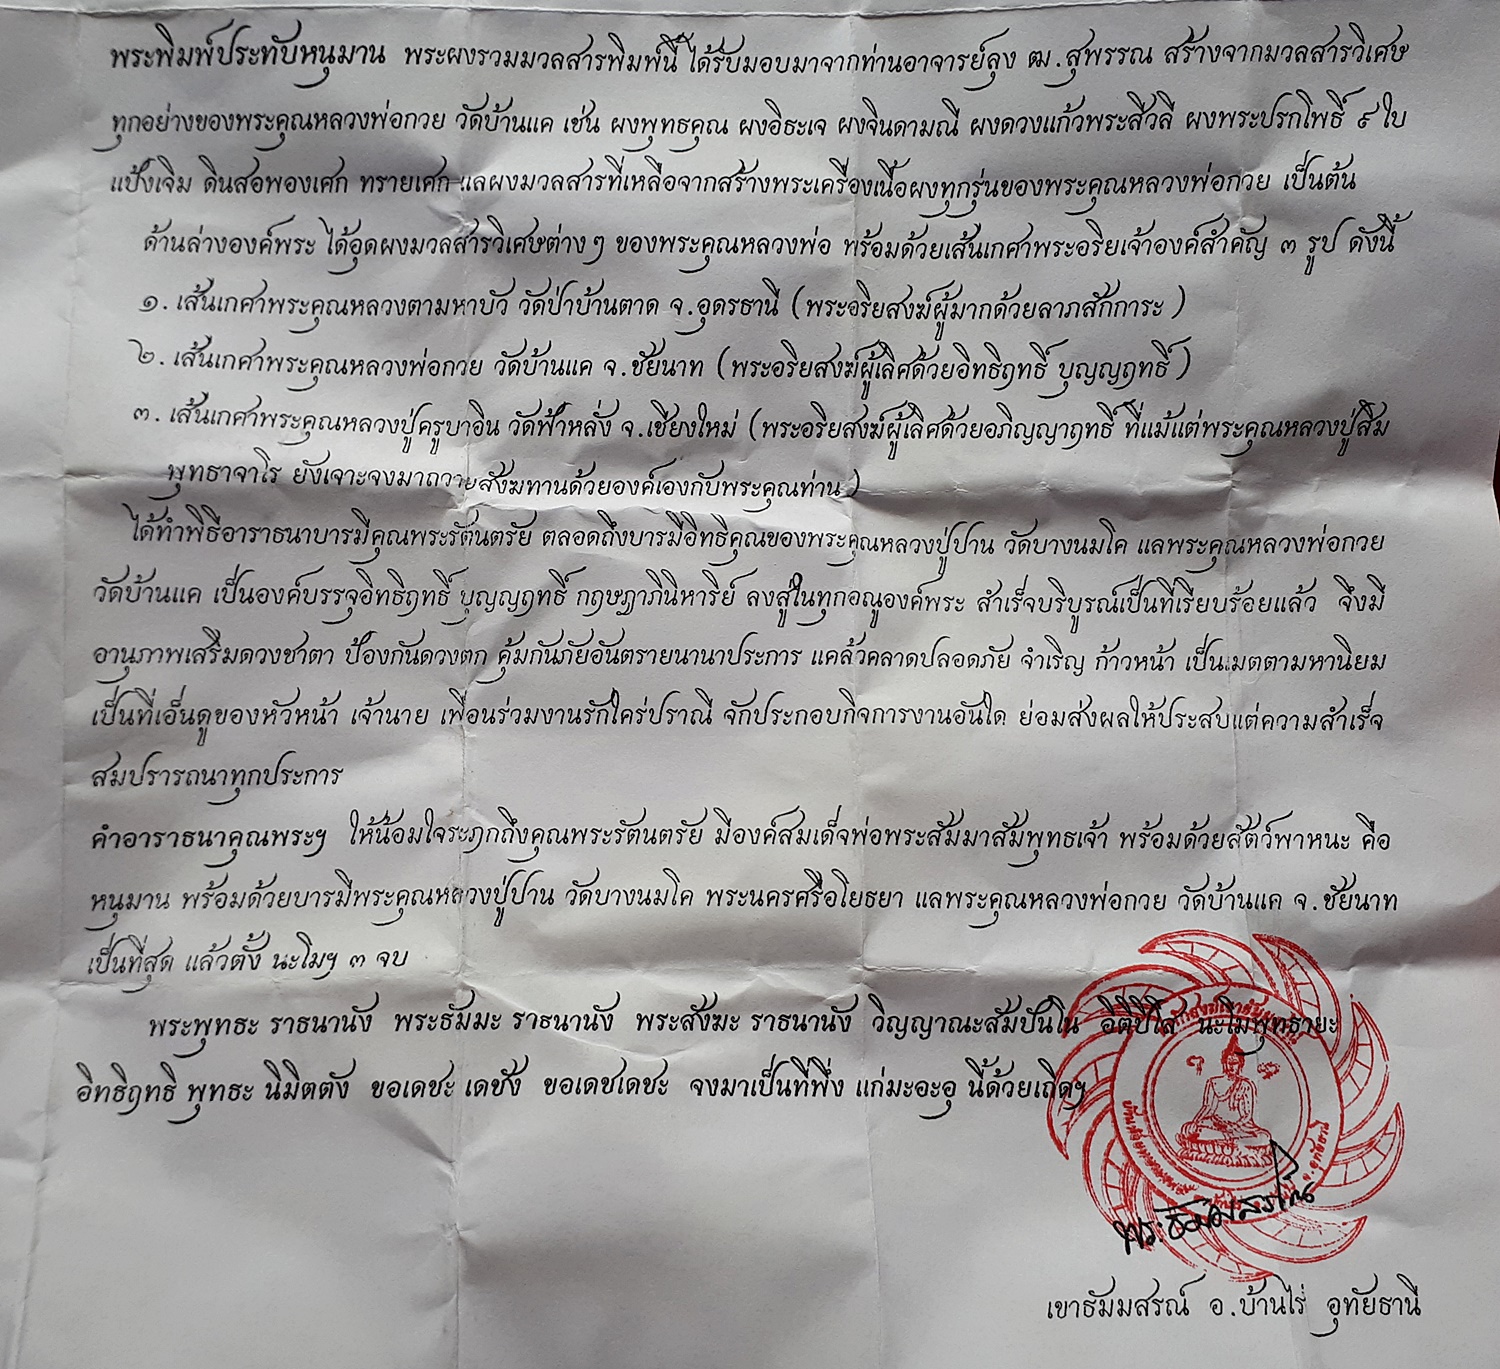 พระพิมพ์ประทับหนุมาน พระผงรวมมวลสารพิมพ์นี้ ได้รับมอบมาจากท่านอาจารย์ลุง ฒ.สุพรรณ สร้างจากมวลสารวิเศษ
ทุกอย่างของพระคุณหลวงพ่อกวย วัดบ้านแค เช่น ผงพุทธคุณ ผงอิธะเจ ผงจินดามณี ผงดวงแก้วพระสีวลี ผงพระปรกโพธิ์ ๙ ใบ
แป้งเจิม ดินสอพองเศก ทรายเศก แลผงมวลสารที่เหลือจากสร้างพระเครื่องเนื้อผงทุกรุ่นของพระคุณหลวงพ่อกวย เป็นต้น
ด้านล่างองค์พระ ได้อุดผงมวลสารวิเศษต่างๆ ของพระคุณหลวงพ่อ พร้อมด้วยเส้นเกศาพระอริยเจ้าองค์สำคัญ ๓ รูป ดังนี้
๑. เส้นเกศาพระคุณหลวงตามหาบัว วัดป่าบ้านตาด จ.อุดรธานี (พระอริยสงฆ์ผู้มากด้วยลาภสักการะ )
๒. เส้นเกศาพระคุณหลวงพ่อกวย วัดบ้านแค จ.ชัยนาท (พระอริยสงฆ์ผู้เลิศด้วยอิทธิฤทธิ์ บุญญฤทธิ์ )
๓. เส้นเกศาพระคุณหลวงปู่ครูบาอิน วัดฟ้าหลั่ง จ.เชียงใหม่ (พระอริยสงฆ์ผู้เลิศด้วยอภิญญาฤทธิ์ ที่แม้แต่พระคุณหลวงปู่สิม
พุทธาจาโร ยังเจาะจงมาถวายสังฆทานด้วยองค์เองกับพระคุณท่าน )
ได้ทำพิธีอาราธนาบารมีคุณพระรัตนตรัย ตลอดถึงบารมีอิทธิคุณของพระคุณหลวงปู่ปาน วัดบางนมโค แลพระคุณหลวงพ่อกวย
วัดบ้านแค เป็นองค์บรรจุอิทธิฤทธิ์ บุญญฤทธิ์ กฤษฎาภินิหาริย์ ลงสู่ในทุกอณูองค์พระ สำเร็จบริบูรณ์เป็นที่เรียบร้อยแล้ว จึงมี
อานุภาพเสริมดวงชาตา ป้องกันดวงตก คุ้มกันภัยอันตรายนานาประการ แคล้วคลาดปลอดภัย จำเริญ ก้าวหน้า เป็นเมตตามหานิยม
เป็นที่เอ็นดูของหัวหน้า เจ้านาย เพื่อนร่วมงานรักใคร่ปราณี จักประกอบกิจการงานอันใด ย่อมส่งผลให้ประสบแต่ความสำเร็จ
สมปรารถนาทุกประการ
คำอาราธนาคุณพระฯ ให้น้อมใจระฦกถึงคุณพระรัตนตรัย มีองค์สมเด็จพ่อพระสัมมาสัมพุทธเจ้า พร้อมด้วยสัตว์พาหนะ คือ
หนุมาน พร้อมด้วยบารมีพระคุณหลวงปู่ปาน วัดบางนมโค พระนครศรีอโยธยา แลพระคุณหลวงพ่อกวย วัดบ้านแค จ.ชัยนาท
เป็นที่สุด แล้วตั้ง นะโมฯ ๓ จบ
พระพุทธะ ราธนานัง พระธัมมะ ราธนานัง พระสังฆะ ราธนานัง วิญญาณะสัมปันโน อิติปิโส นะโมพุทธายะ
อิทธิฤทธิ พุทธะ นิมิตตัง ขอเดชะ เดชัง ขอเดชเดชะ จงมาเป็นที่พึ่ง แก่มะอะอุ นี้ด้วยเถิดฯ
พระธัมมสรโณ
เขาธัมมสรณ์ อ.บ้านไร่ อุทัยธานี